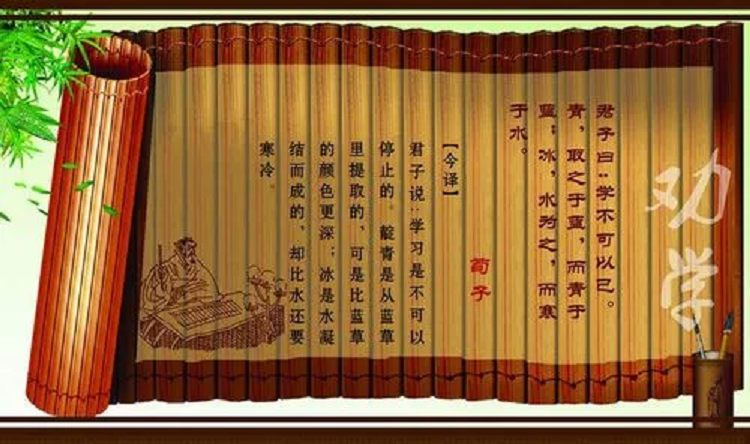 劝学
君子曰:学不可以已。
青,取之于蓝,而青于
蓝;冰,水为之,而寒
于水。
荀子
【今译】
君子说:学习是不可以
停止的。靛青是从蓝草
里提取的,可是比蓝草
的颜色更深;冰是水凝
结而成的,却比水还要
寒冷。